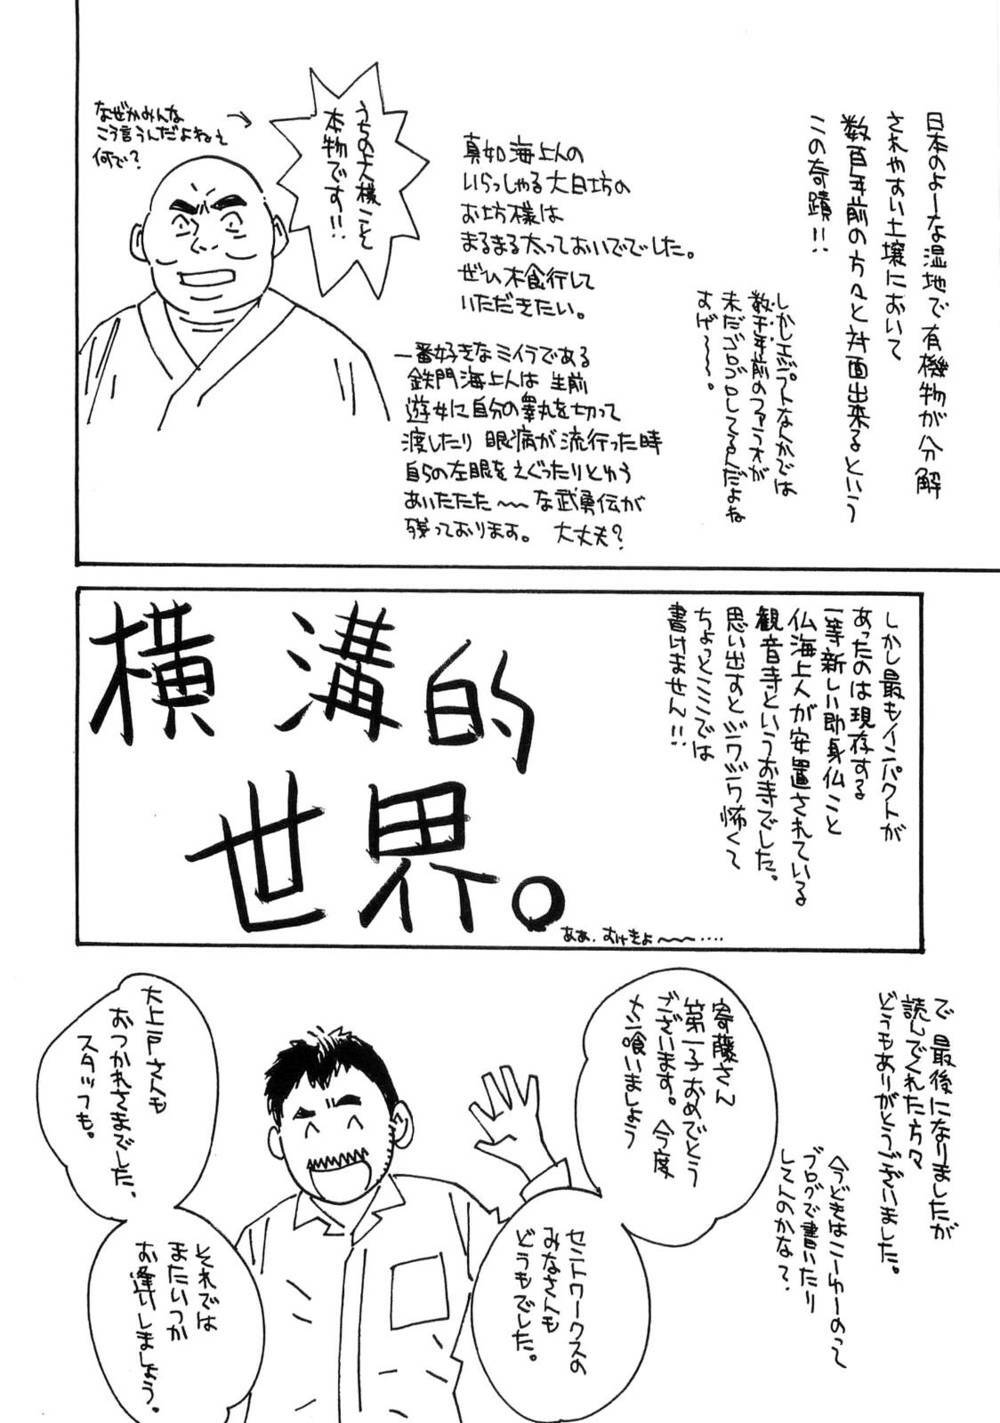 日本のよーな湿地で有機物が分解
されやすい土壌において
数百年前の方々と対面出来るという
この奇蹟!!
しかしエジプトなんかでは
数千年前のファラオが
未だゴロゴロしてるんだよね
すげ〜〜〜。
真如海上人の
いらっしゃる大日坊の
お坊様は
まるまる太っておいででした。
ぜひ木食行して
いただきたい。
うちの上人様こそ
本物です!!
なぜかみんな
こう言うんだよねぇ
何で?
一番好きなミイラである
鉄門海上人は生前
遊女に自分の睾丸を切って
渡したり眼病が流行った時
自らの左眼をえぐったりとゆう
あいたたた〜〜な武勇伝が
残っております。大丈夫?
しかし最もインパクトが
あったのは現存する
一等新しい即身仏こと
仏海上人が安置されている
観音寺というお寺でした。
思い出すとジワジワ怖くて
ちょっとここでは
書けません!!
横溝的
世界。
ああ、むげきよ〜〜〜....
で最後になりましたが
読んでくれた方々
どうもありがとうございました。
今どきはこーゆーのって
ブログで書いたり
してんのかな?
寄藤さん
第一子おめでとう
ございます。今度
メシ喰いましょう
セントワークスの
みなさんも
どうもでした。
大上戸さんも
おつかれさまでした、
スタッフも。
それでは
またいつか
お逢いしましょう。